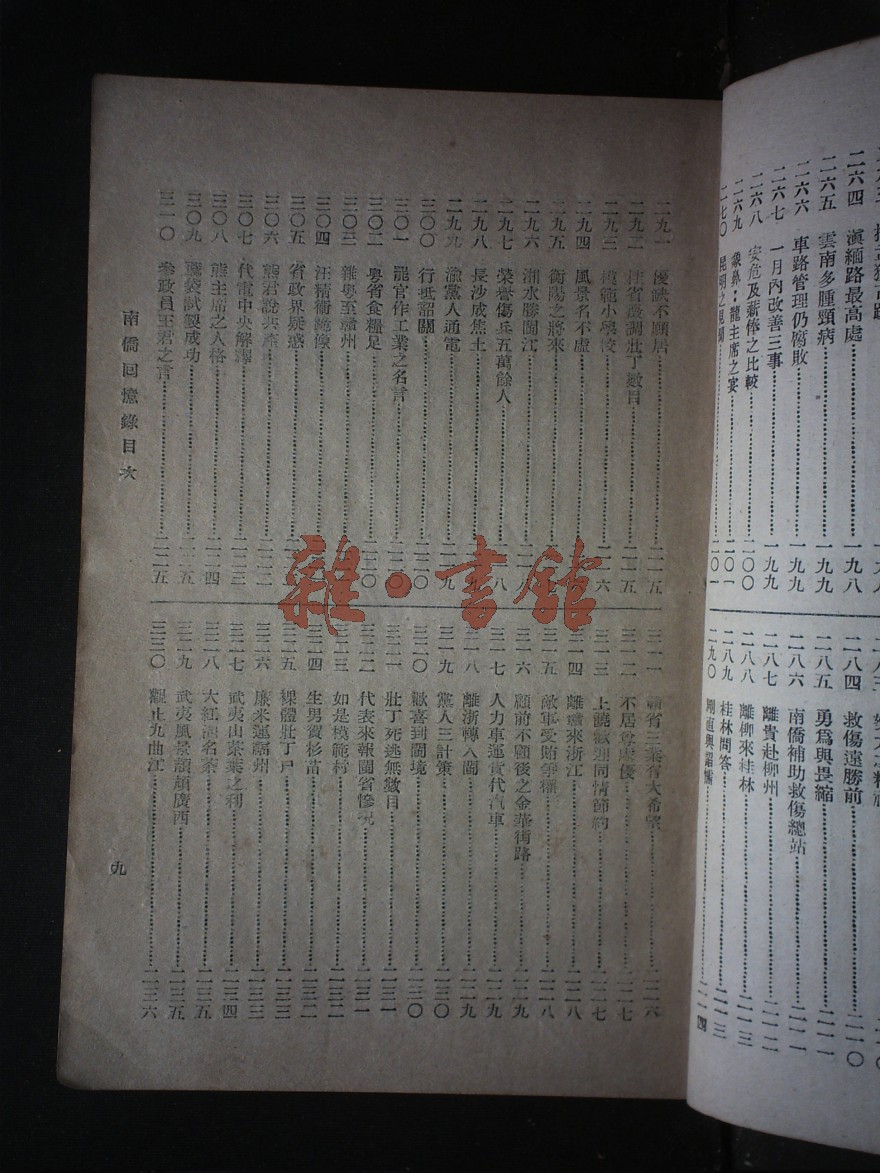 二六四 滇緬路最高處 一九八
二六五 雲南多腫頸病 一九九
二六六 車路管理仍腐敗 一九九
二六七 一月內改善三事 一九九
二六八 安危及薪俸之比較 二〇〇
二六九 象鼻：龍主席之宴 二〇一
二七〇 昆明之見聞 二〇一
二八四 救傷遠勝前 二一〇
二八五 勇爲與畏縮 二一一
二八六 南僑補助救傷總站 二一一
二八七 離貴赴柳州 二一二
二八八 離柳來桂林 二一三
二八九 桂林問答 二一三
二九〇 剛直與諂媚 二一四
二九一 優缺不願居 二一五
二九二 壯丁數目 二一五
二九三 模範小學校 二一六
二九四 風景名不虛
二九五 衡陽之將來
二九六 湘水勝閩江 二一八
二九七 榮譽傷兵五萬餘人 二一八
二九八 長沙成焦土 二一九
二九九 渝黨人通電 二一九
三〇〇 行抵韶關 二二〇
三〇一 罷官作工業之名言 二二〇
三〇二 粵省食糧足 二二〇
三〇三 離粵至贛州
三〇四 汪精衛跪像
三〇五 省政界疑惑
三〇六 熊君說共產 二二二
三〇七 代電中央解釋 二二三
三〇八 熊主席之人格 二二四
三〇九 試製成功 二二五
三一〇 參政員王君之言 二二五
三一一 贛省三業有大希望 二二六
三一二 不居尊處優 二二七
三一三 上饒歡迎同情節約 二二七
三一四 離贛來浙江 二二八
三一五 敵軍受賄爭權 二二八
三一六 顧前不顧後之金華街路 二二九
三一七 人力車運貨代汽車 二二九
三一八 離浙轉入閩 二二九
三一九 黨人三計策 二三〇
三二〇 歡喜到閩境 二三〇
三二一 壯丁死逃無數目 二三一
三二二 代表來報閩省慘況 二三一
三二三 如是模範村 二三二
三二四 生男賣杉苗 二三二
三二五 裸體壯丁尸 二三三
三二六 廉米運福州 二三三
三二七 武夷山茶葉之利 二三四
三二八 大紅袍名茶 二三五
三二九 武夷風景頡頏廣西 二三五
三三〇 觀止九曲江 二三六
南僑回憶錄目次
九
雜·書館